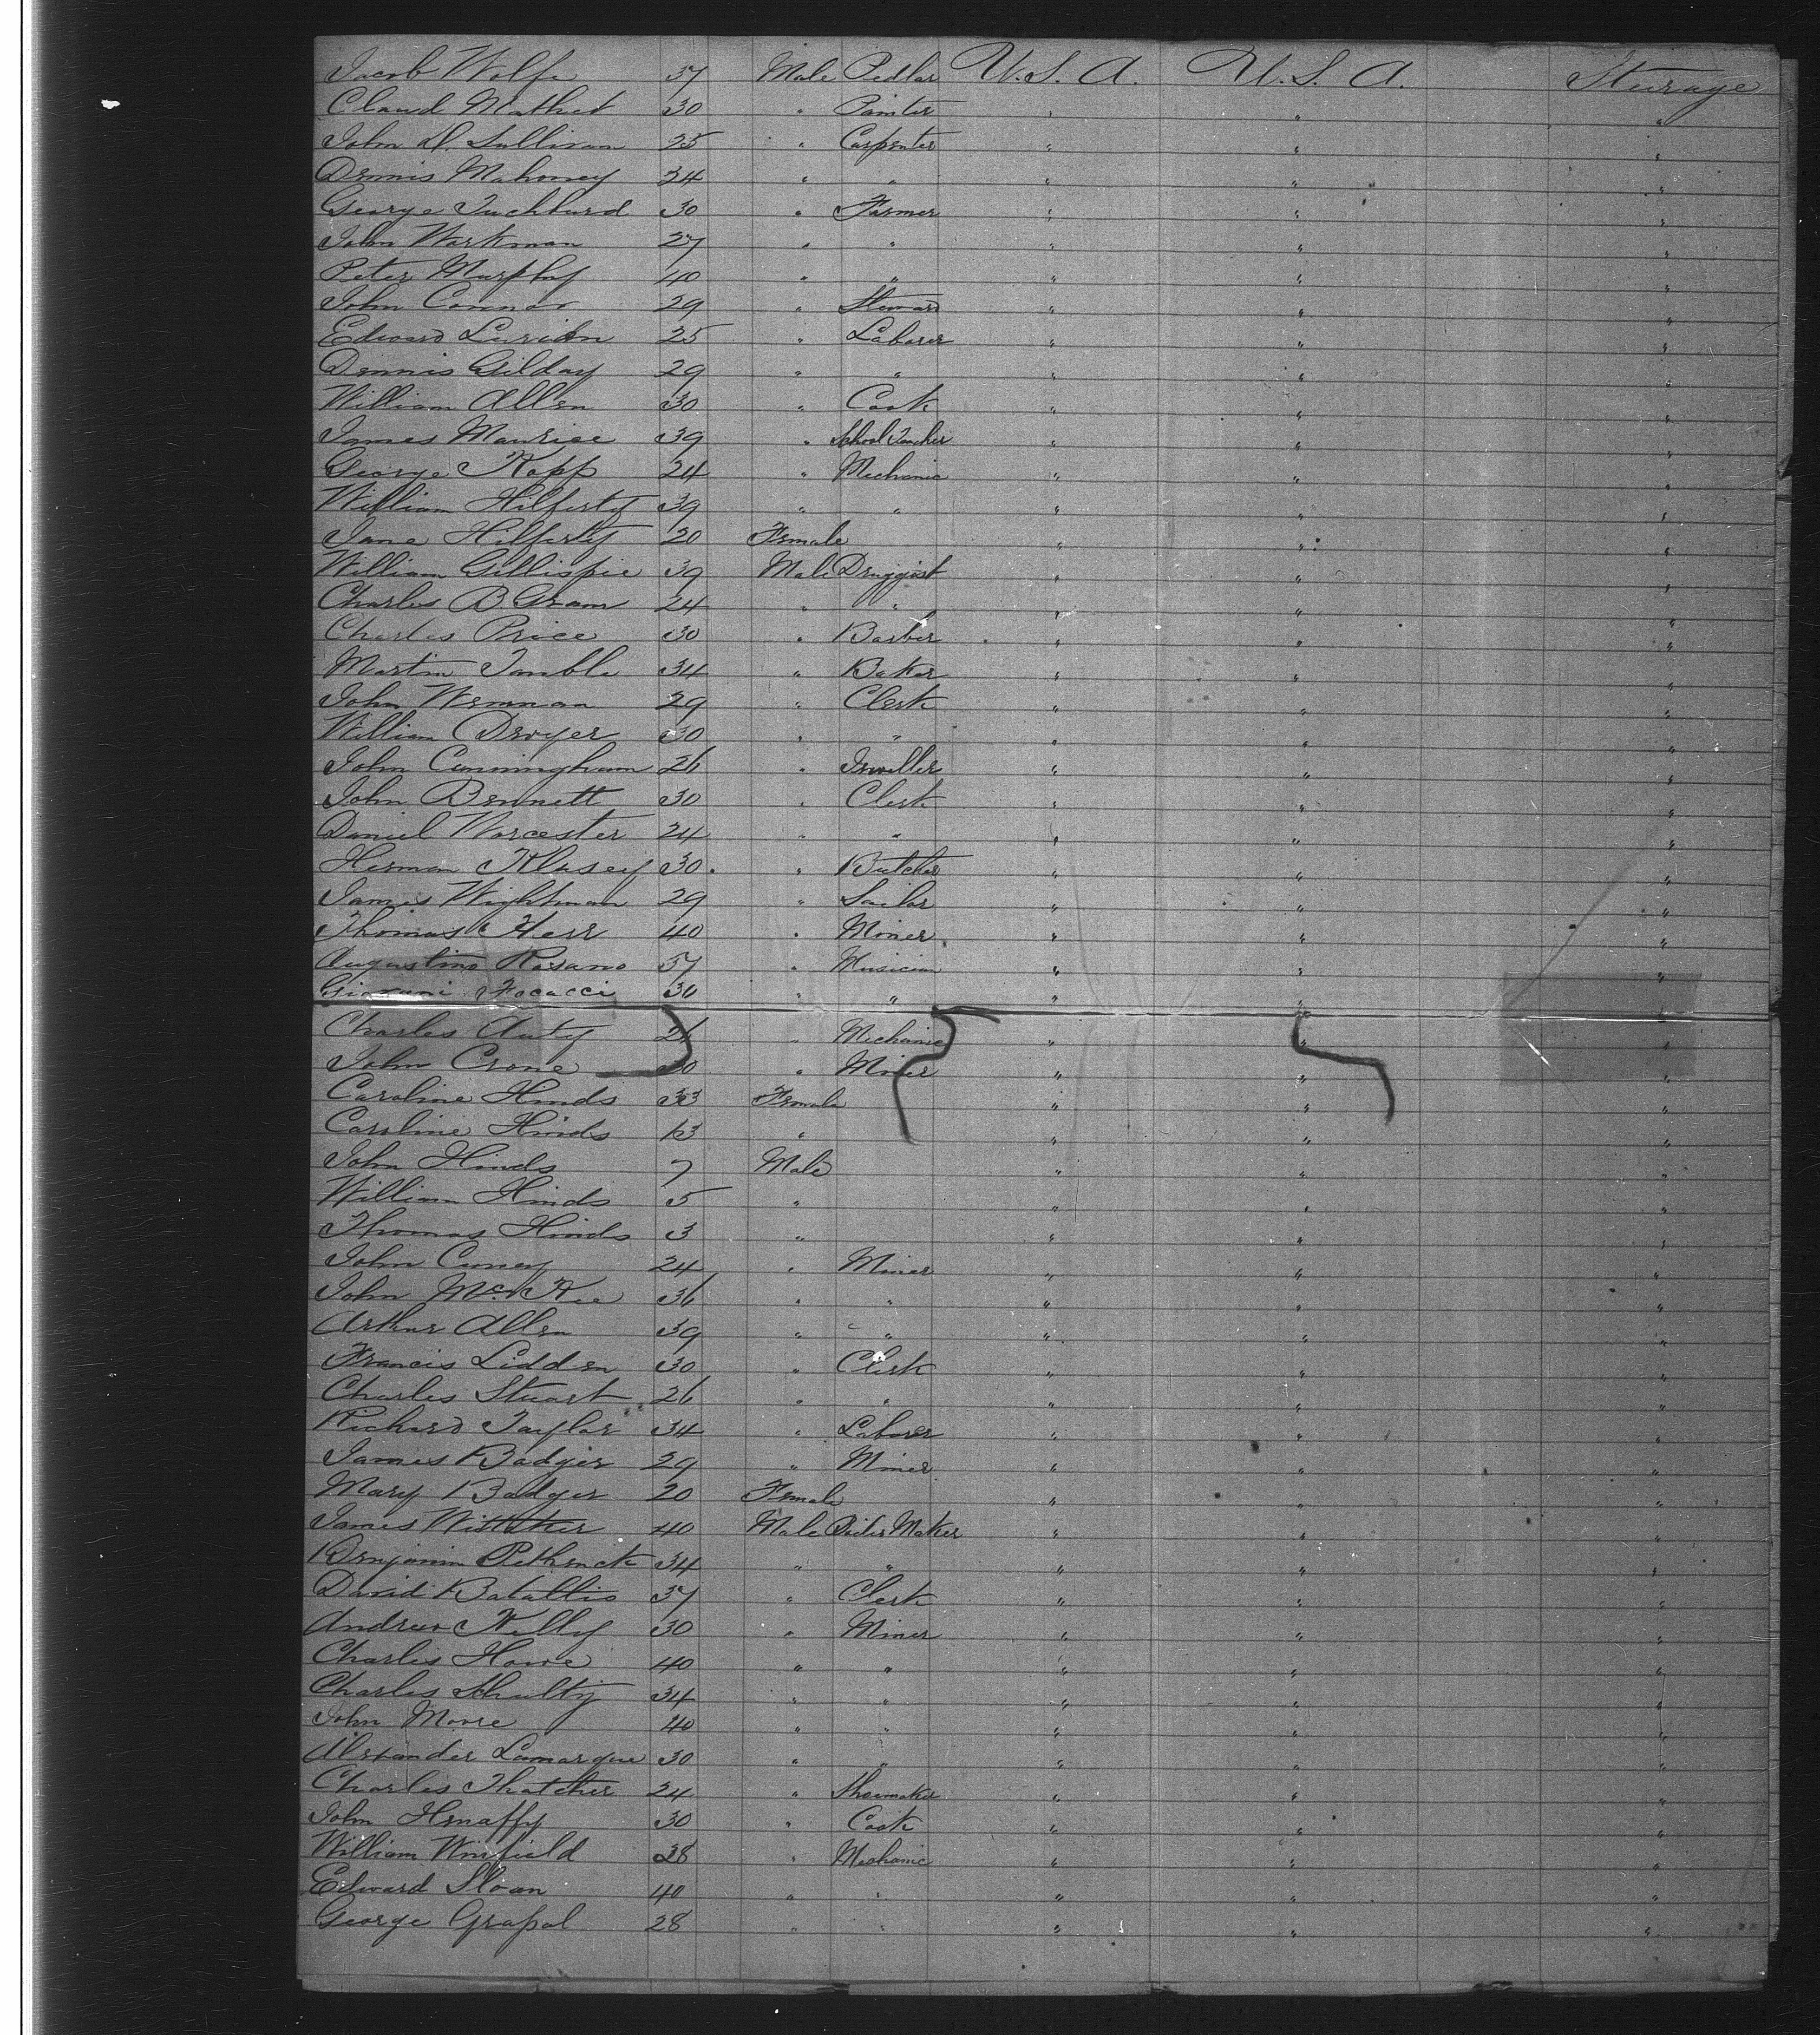 Jacob Wolfe 37 Male Pedlar U. S. A. U. S. A. Steerage
Claud Mathet 30 " Painter " " "
John D. Sullivan 25 " Carpenter " " "
Dennis Mahoney 24 " " " " "
George 30 " Farmer " " "
John Workman 27 " " " " "
Peter Murphy 40 " " " " "
John Connor 29 " Steward " " "
Edward 25 " Laborer " " "
Dennis Gilday 29 " " " " "
William Allen 30 " Cook " " "
James Maurice 39 " School Teacher " " "
George Kopp 24 " Mechanic " " "
William Hilferty 39 " " " " "
Jane Hilferty 20 Female " " "
William Gillispie 39 Male Druggist " " "
Charles B Gram 24 " " " " "
Charles Price 30 " Barber " " "
Martin Tamble 34 " Baker " " "
John Wenman 29 " Clerk " " "
William Dwyer 30 " " " " "
John Cunningham 26 " Jeweller " " "
John Bennett 30 " Clerk " " "
Daniel Worcester 24 " " " " "
Herman Klusey 30 " Butcher " " "
James Wightman 29 " Sailor " " "
Thomas Herr 40 " Miner " " "
Augustino Rosano 37 " Musician " " "
Giovani Focacci 30 " " " " "
Charles Auty 26 " Mechanic " " "
John Crone 30 " Miner " " "
Caroline Hinds 33 Female " " "
Caroline Hinds 13 " " " "
John Hinds 7 Male " " "
William Hinds 5 " " " "
Thomas Hinds 3 " " " "
John Cuney 24 " Miner " " "
John McKee 36 " " " " "
Arthur Allen 39 " " " " "
Francis Lidden 30 " Clerk " " "
Charles Stuart 26 " " " " "
Richard Taylor 34 " Laborer " " "
James Badger 29 " Miner " " "
Mary Badger 20 Female " " "
James 40 Male Boiler Maker " " "
Benjamin Pethrick 34 " " " " "
David Batallio 37 " Clerk " " "
Andrew Kelly 30 " Miner " " "
Charles Howe 40 " " " " "
Charles Shulty 34 " " " " "
John Moore 40 " " " " "
Alexander Lamarque 30 " " " " "
Charles Thatcher 24 " Shoemaker " " "
John Henaffy 30 " Cook " " "
William Winfield 28 " Mechanic " " "
Edward Sloan 40 " " " " "
George Grapal 28 " " " " "